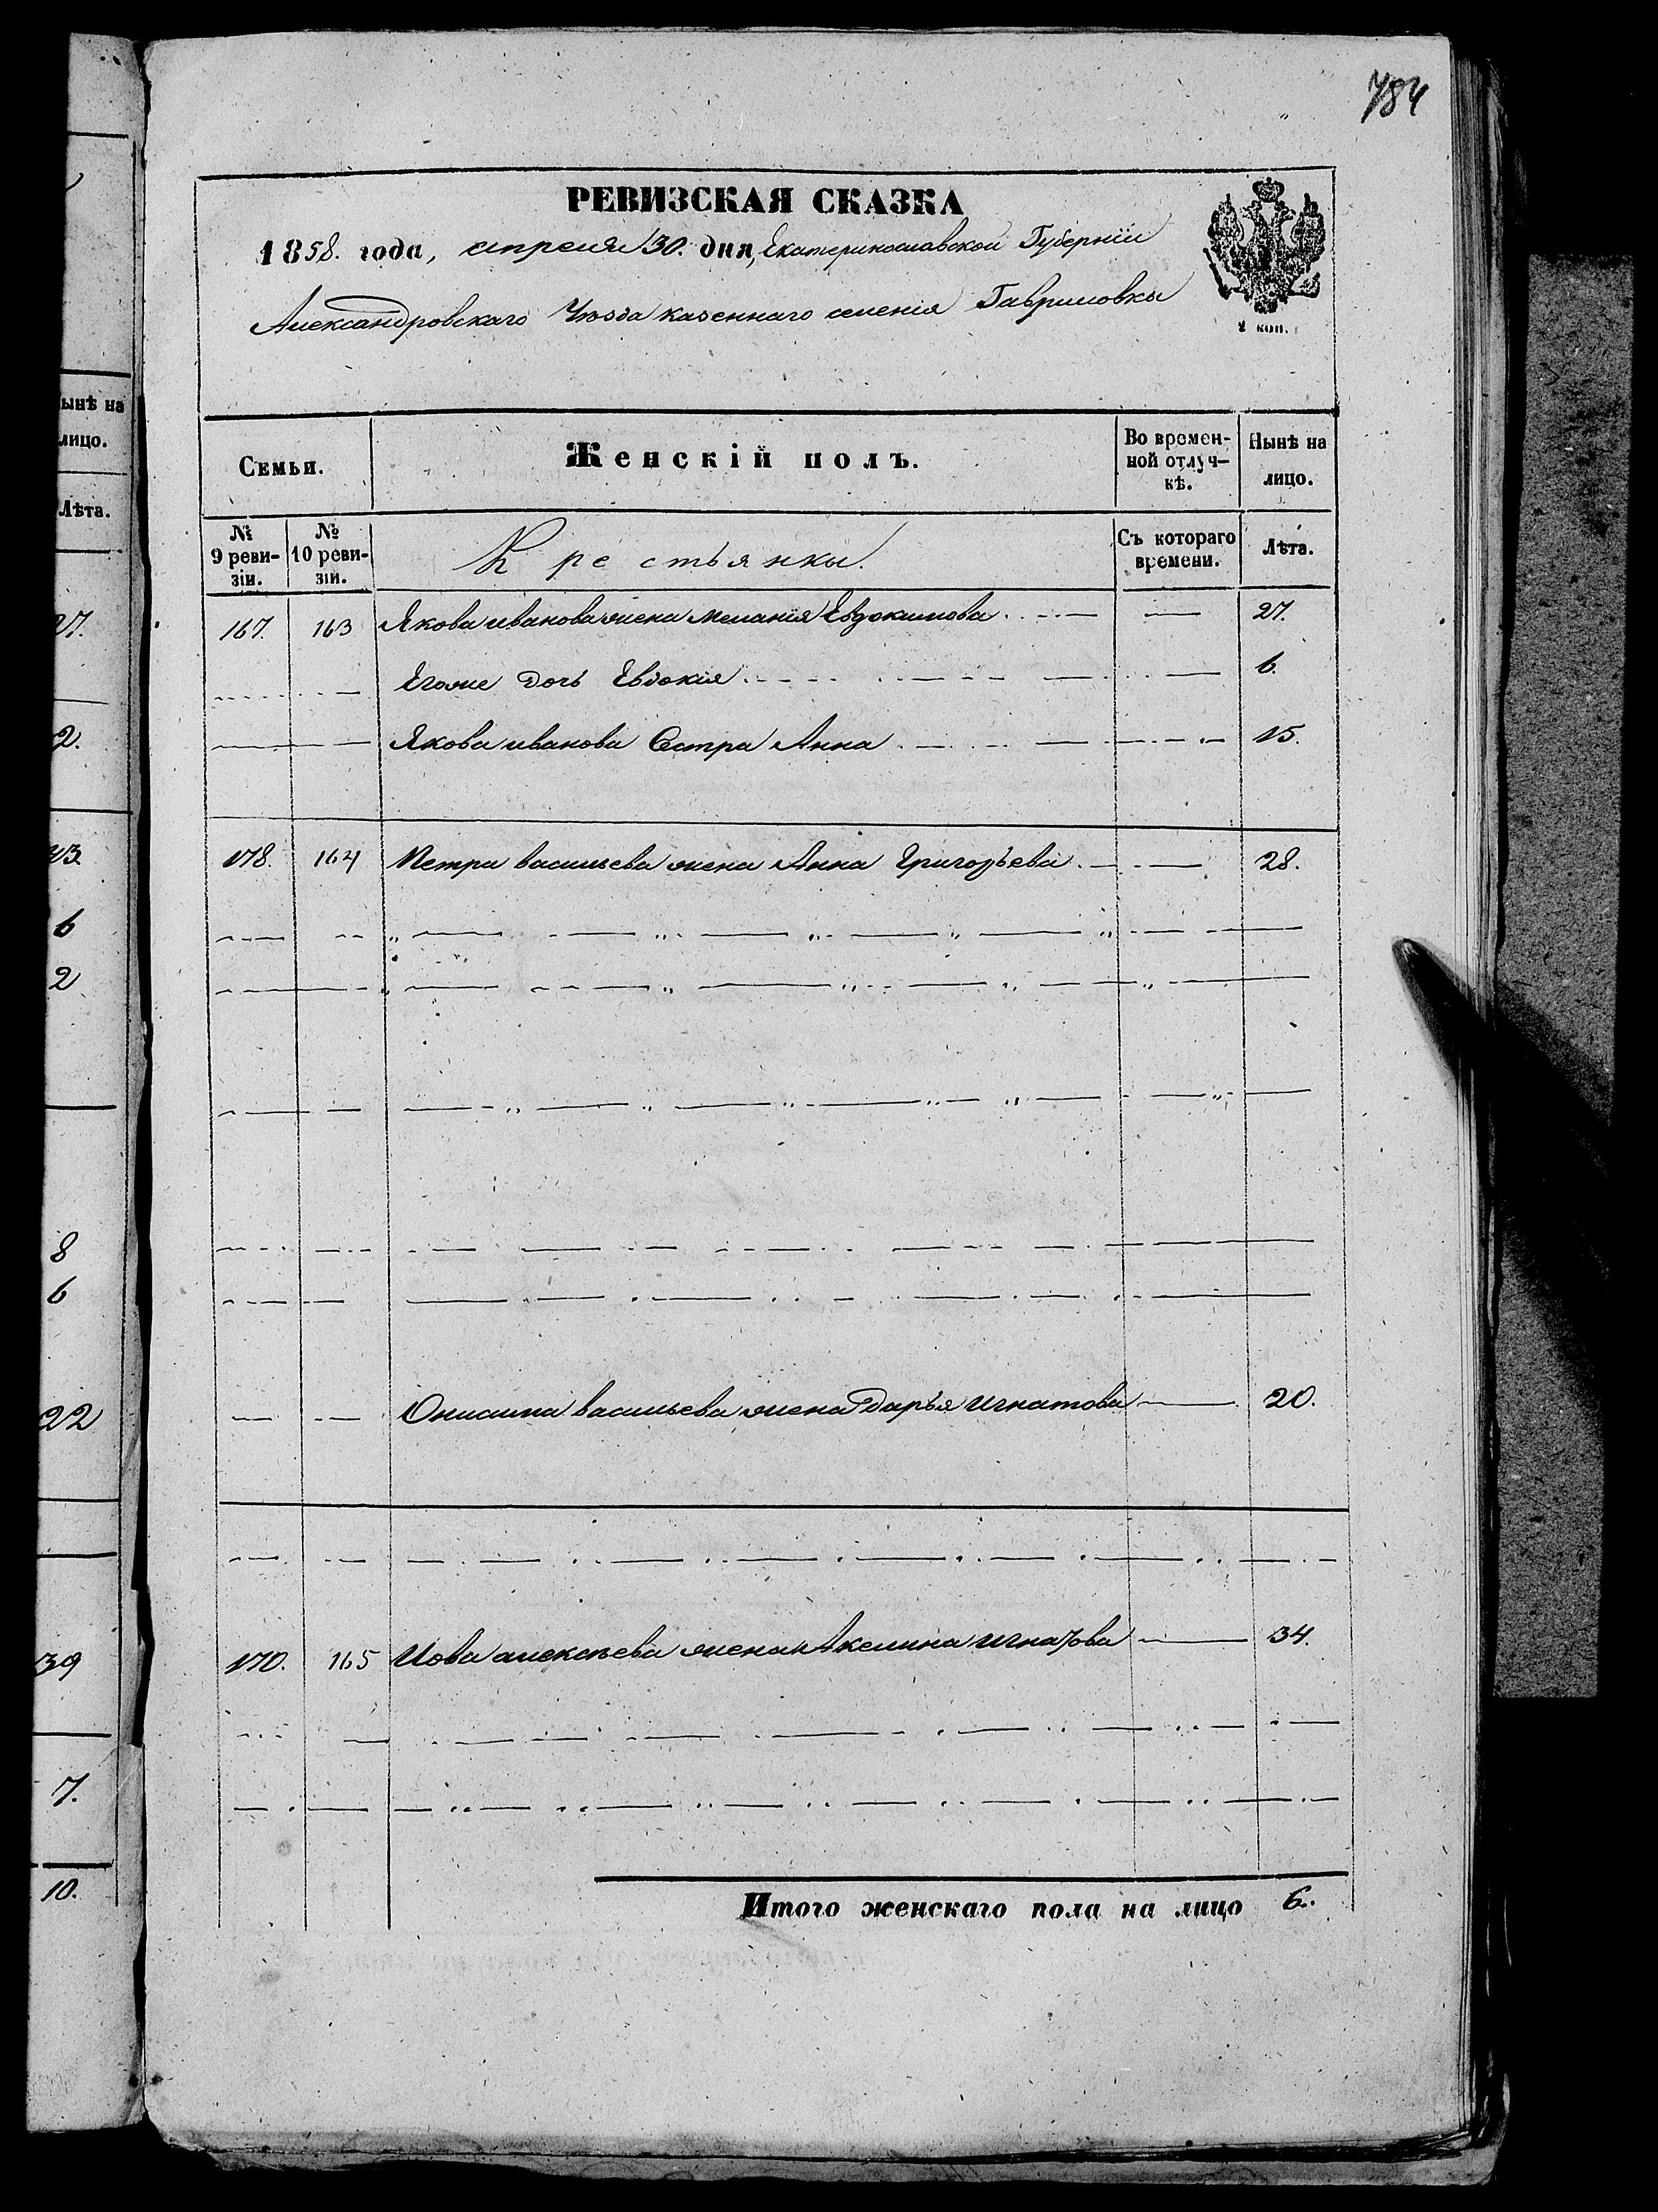 784
РЕВИЗСКАЯ СКАЗКА
1858. года, апреля 30. дня, Екатеринославской Губерніи
Александровскаго Уѣзда казеннаго селенія Гавриловки
2 коп.
Семьи.
Женскій полъ.
Во времен-
ной отлуч-
кѣ.
Нынѣ на
лицо.
№
9 реви-
зіи.
№
10 реви-
зіи.
Крестьянки.
Съ котораго
времени.
Лѣта.
167. 163 Якова иванова жена Меланія Евдокимова 27.
Егоже дочь Евдокія 6.
Якова иванова Сестра Анна 15.
178. 164 Петра васильева жена Анна Григорьева 28.
Онисима васильева жена Дарья Игнатова 20.
170. 165 Иова алексѣева жена Акелина Игнатова 34.
Итого женскаго пола на лицо 6.
ынѣ на
лицо.
Лѣта.
27.
2.
43
6
2
8
6
22
39
7.
10.